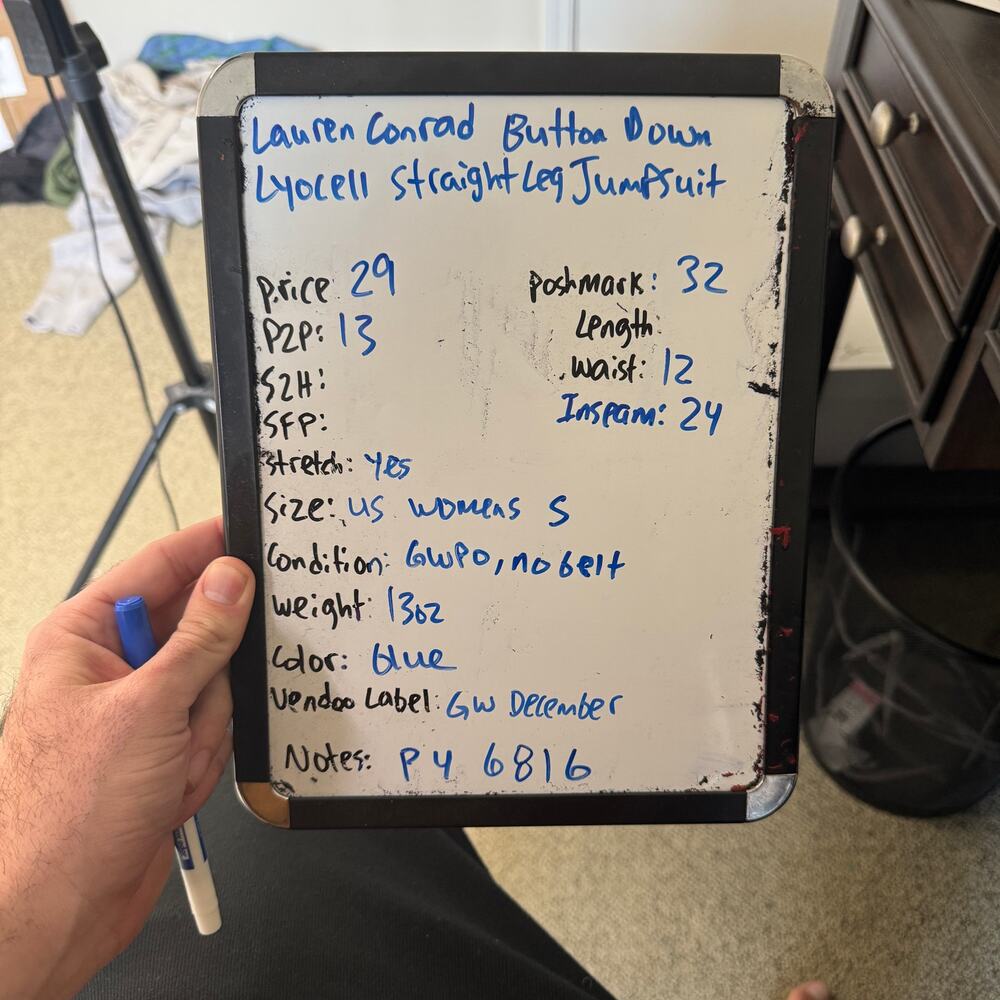 Lauren Conrad Button Down
Lyocell Straight Leg Jumpsuit
price: 29
Poshmark: 32
P2P: 13
Length:
S2H:
waist: 12
SFP:
Inseam: 24
stretch: yes
Size: US womens S
Condition: GWPO, no belt
weight: 13oz
Color: Blue
Vendoo Label: GW December
Notes: P4 6816